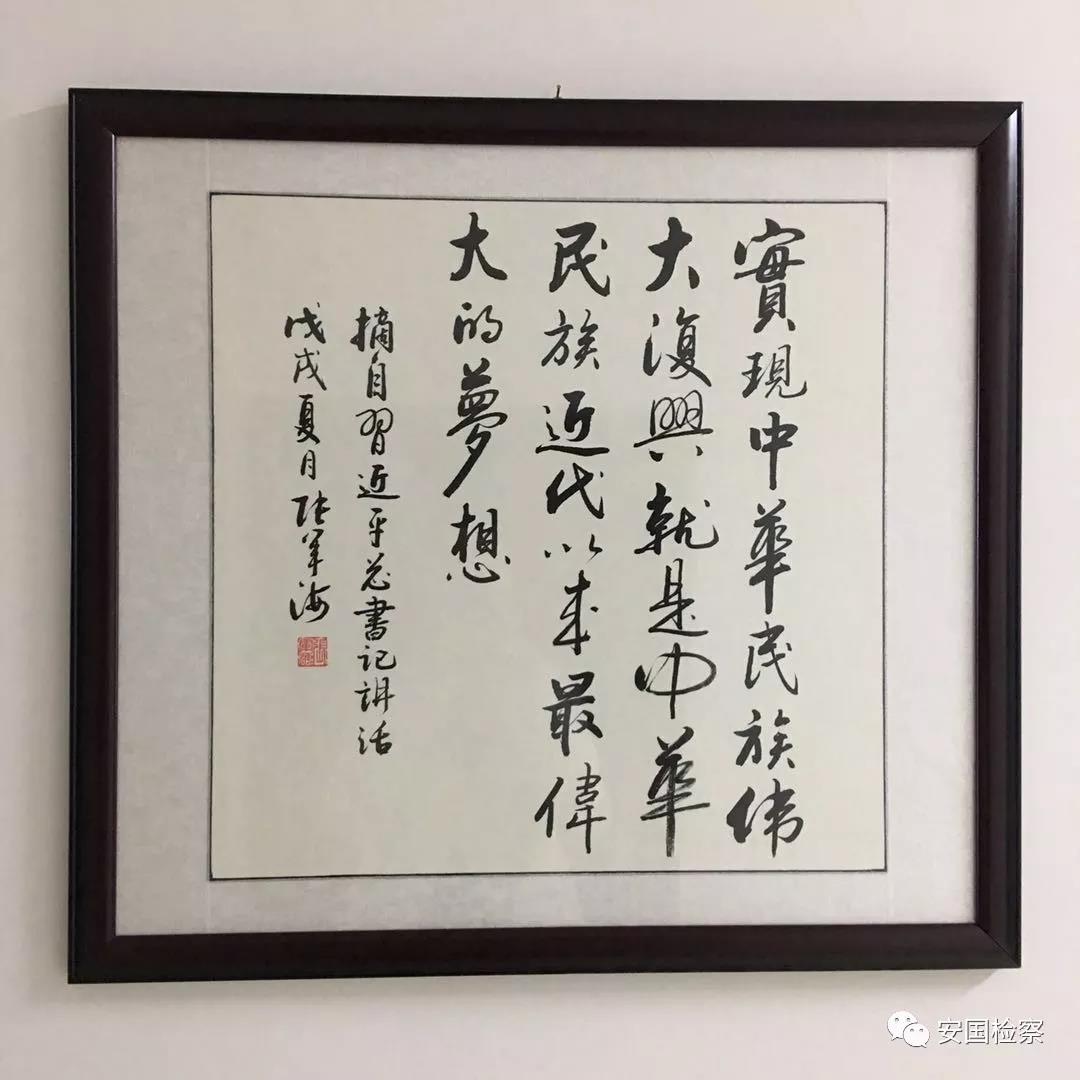 實現中華民族伟
大復興就是中華
民族近代以来最偉
大的夢想
摘自習近平总書记讲话
戊戌夏月张军海
安国检察